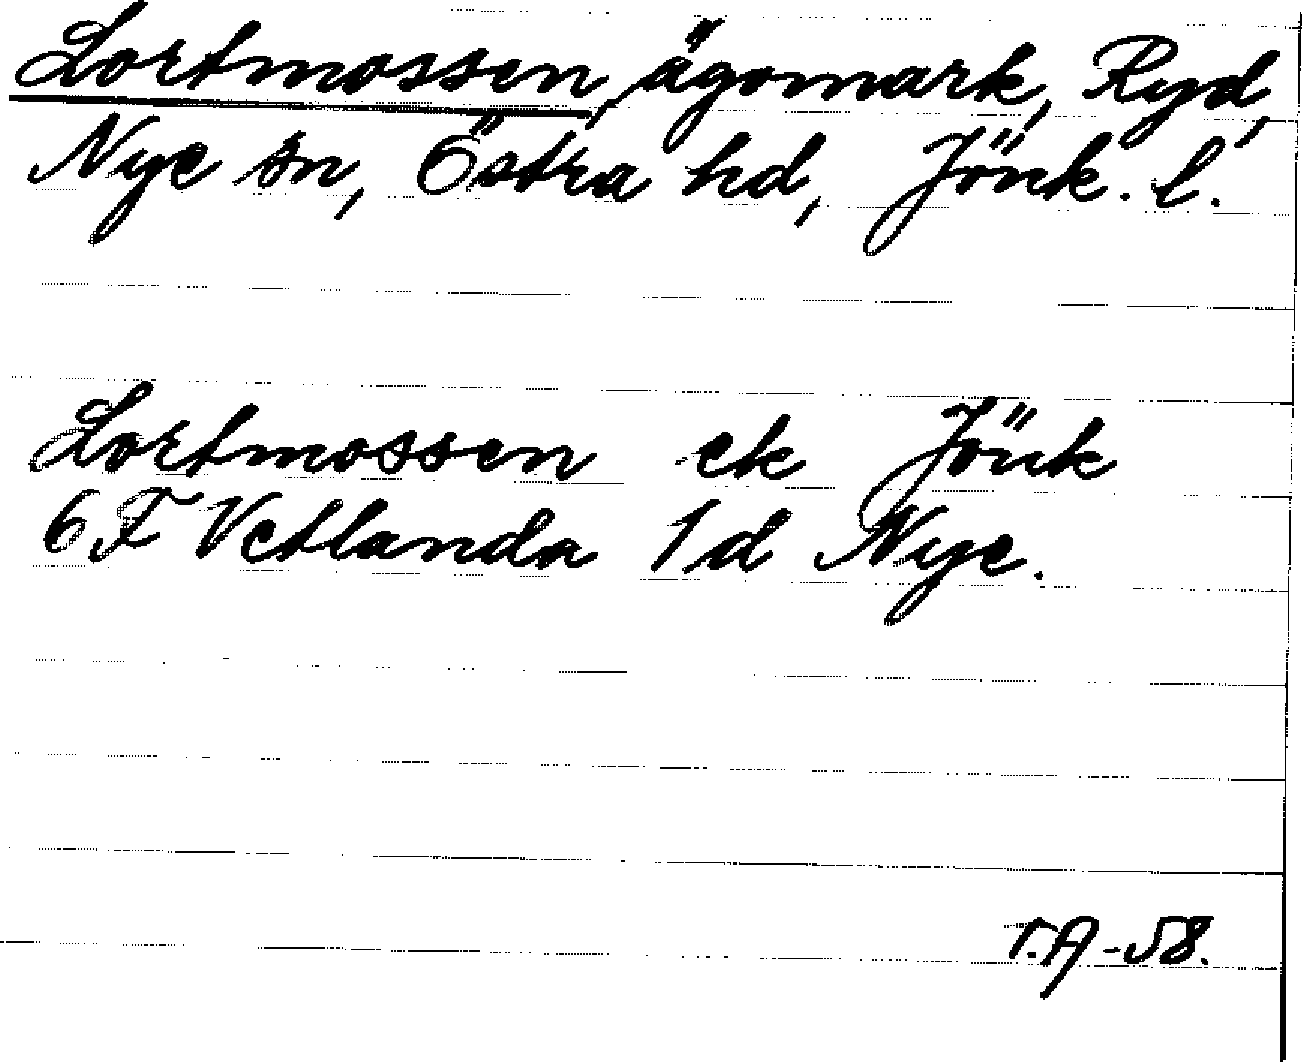 Lortmossen, ägomark, Ryd,
Nye sn, Östra hd, Jönk. l.
Lortmossen ek Jönk
6F Vetlanda 1d Nye.
T.A-58.